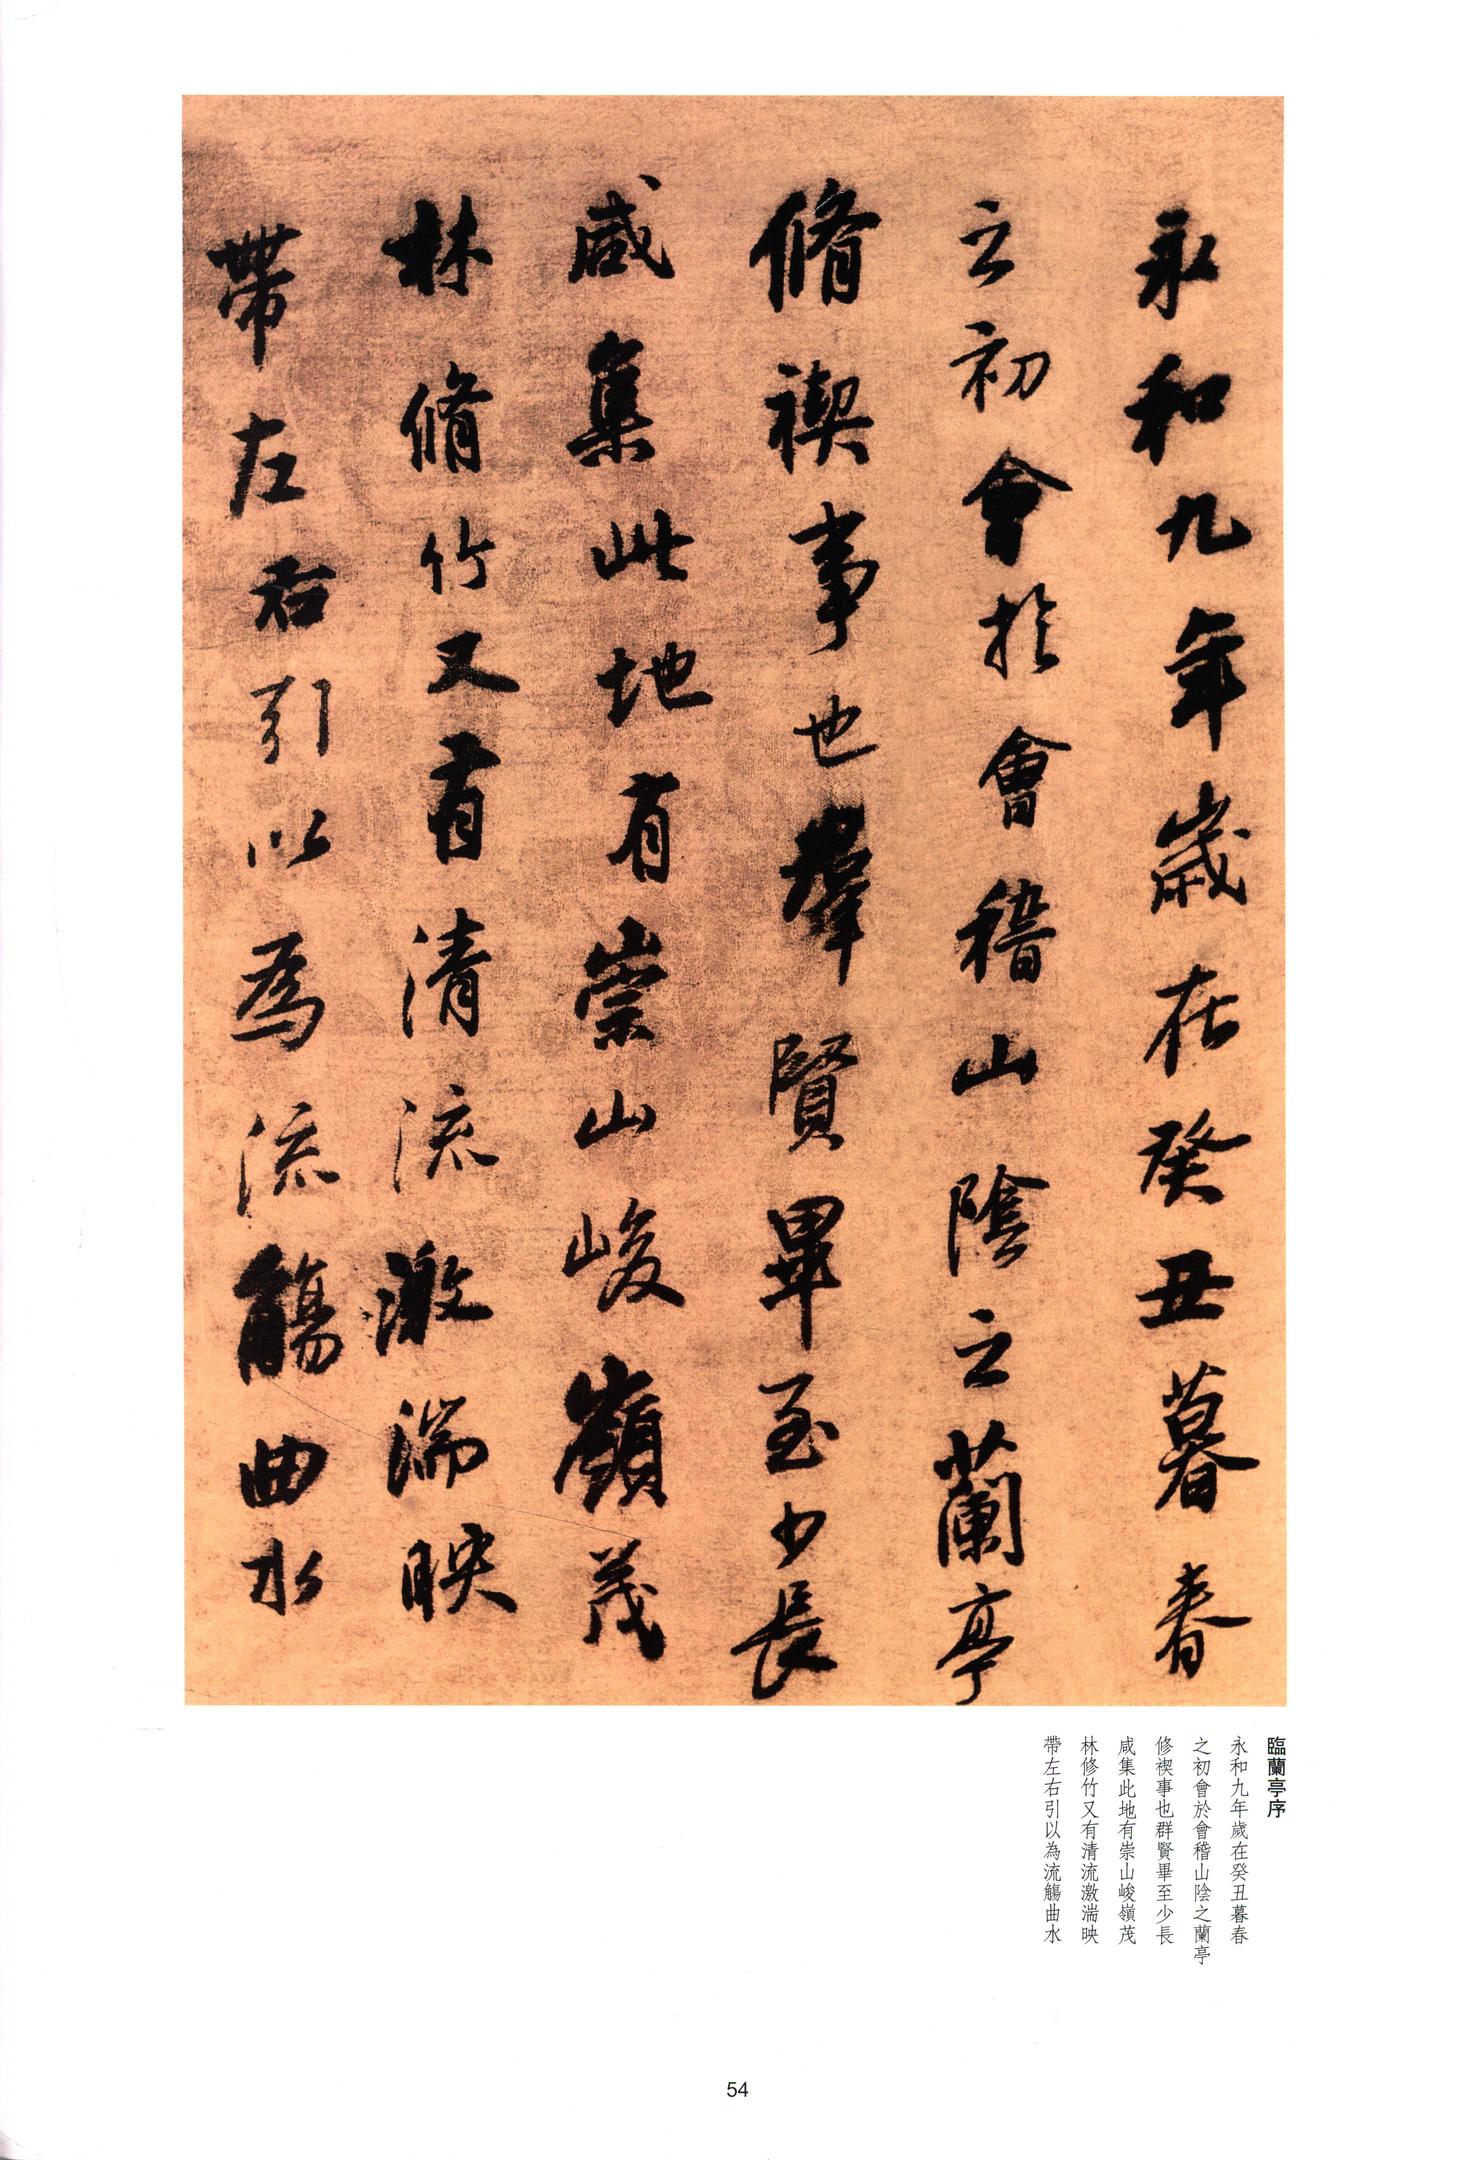 永和九年歲在癸丑暮春
之初會於會稽山陰之蘭亭
脩禊事也羣賢畢至少長
咸集此地有崇山峻嶺茂
林脩竹又有清流激湍映
帶左右引以為流觴曲水
臨蘭亭序
永和九年歲在癸丑暮春
之初會於會稽山陰之蘭亭
修禊事也群賢畢至少長
咸集此地有崇山峻嶺茂
林修竹又有清流激湍映
帶左右引以為流觴曲水
54